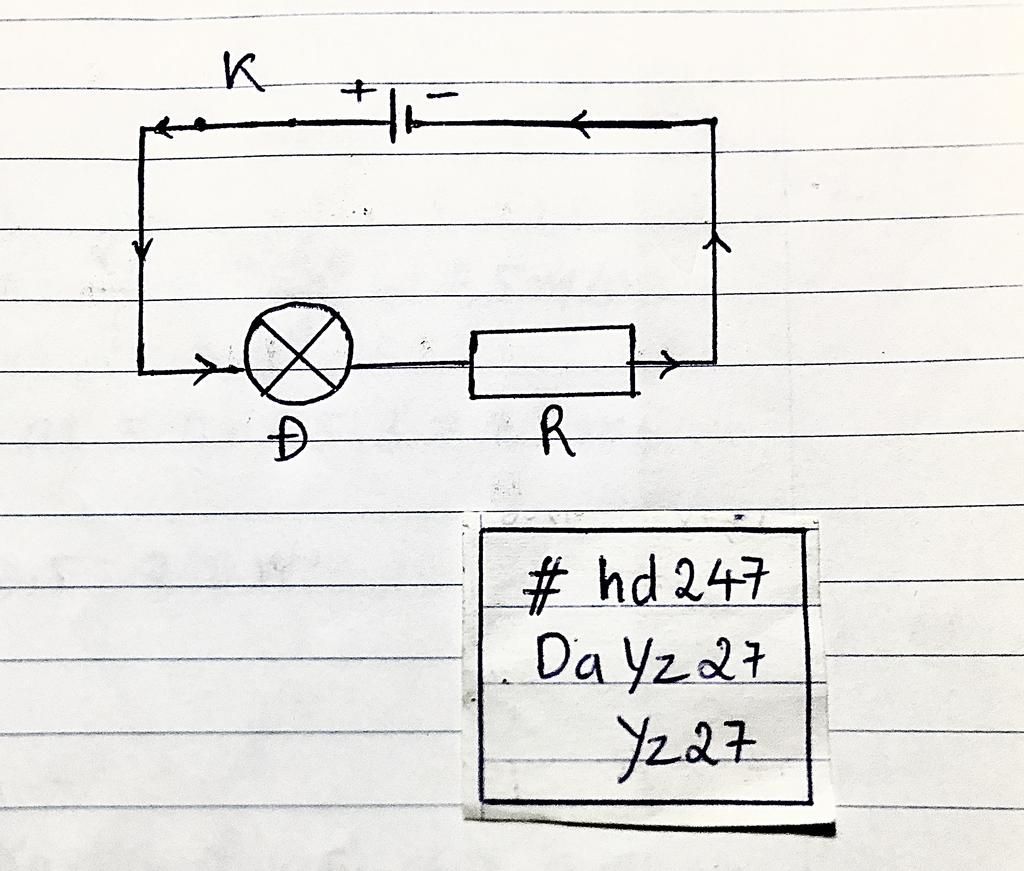 K
+ -
Đ
R
# hd247
Da Yz27
Yz27